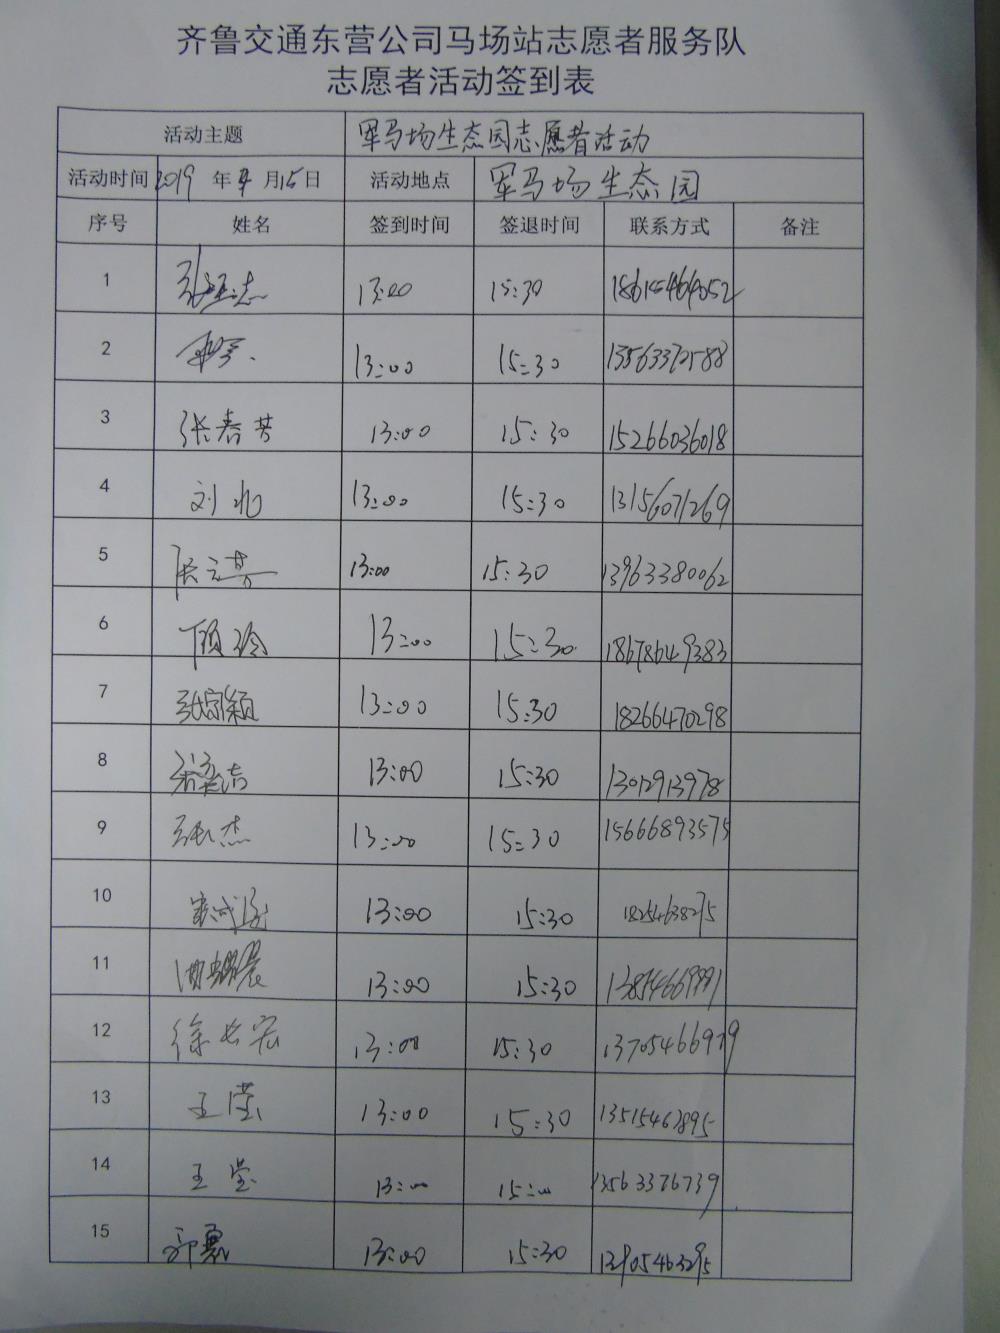 齐鲁交通东营公司马场站志愿者服务队
志愿者活动签到表
活动主题 军马场生态园志愿者活动
活动时间 2019 年 4 月 15 日 活动地点 军马场生态园
序号 姓名 签到时间 签退时间 联系方式 备注
1 13:00 15:30 18615464052
2 13:00 15:30 13563370588
3 张春芳 13:00 15:30 15266036018
4 刘兆 13:00 15:30 13156071269
5 13:00 15:30 13963380062
6 顾玲 13:00 15:30 18678649383
7 张家颖 13:00 15:30 18266470298
8 梁洁 13:00 15:30
9 张杰 13:00 15:30 15666893575
10 13:00 15:30 18254638275
11 13:00 15:30 13854669991
12 徐长宏 13:00 15:30 13705466979
13 王莹 13:00 15:30 13515467895
14 王莹 13:00 15:00 13563376739
15 郭震 13:00 15:30 13905463295